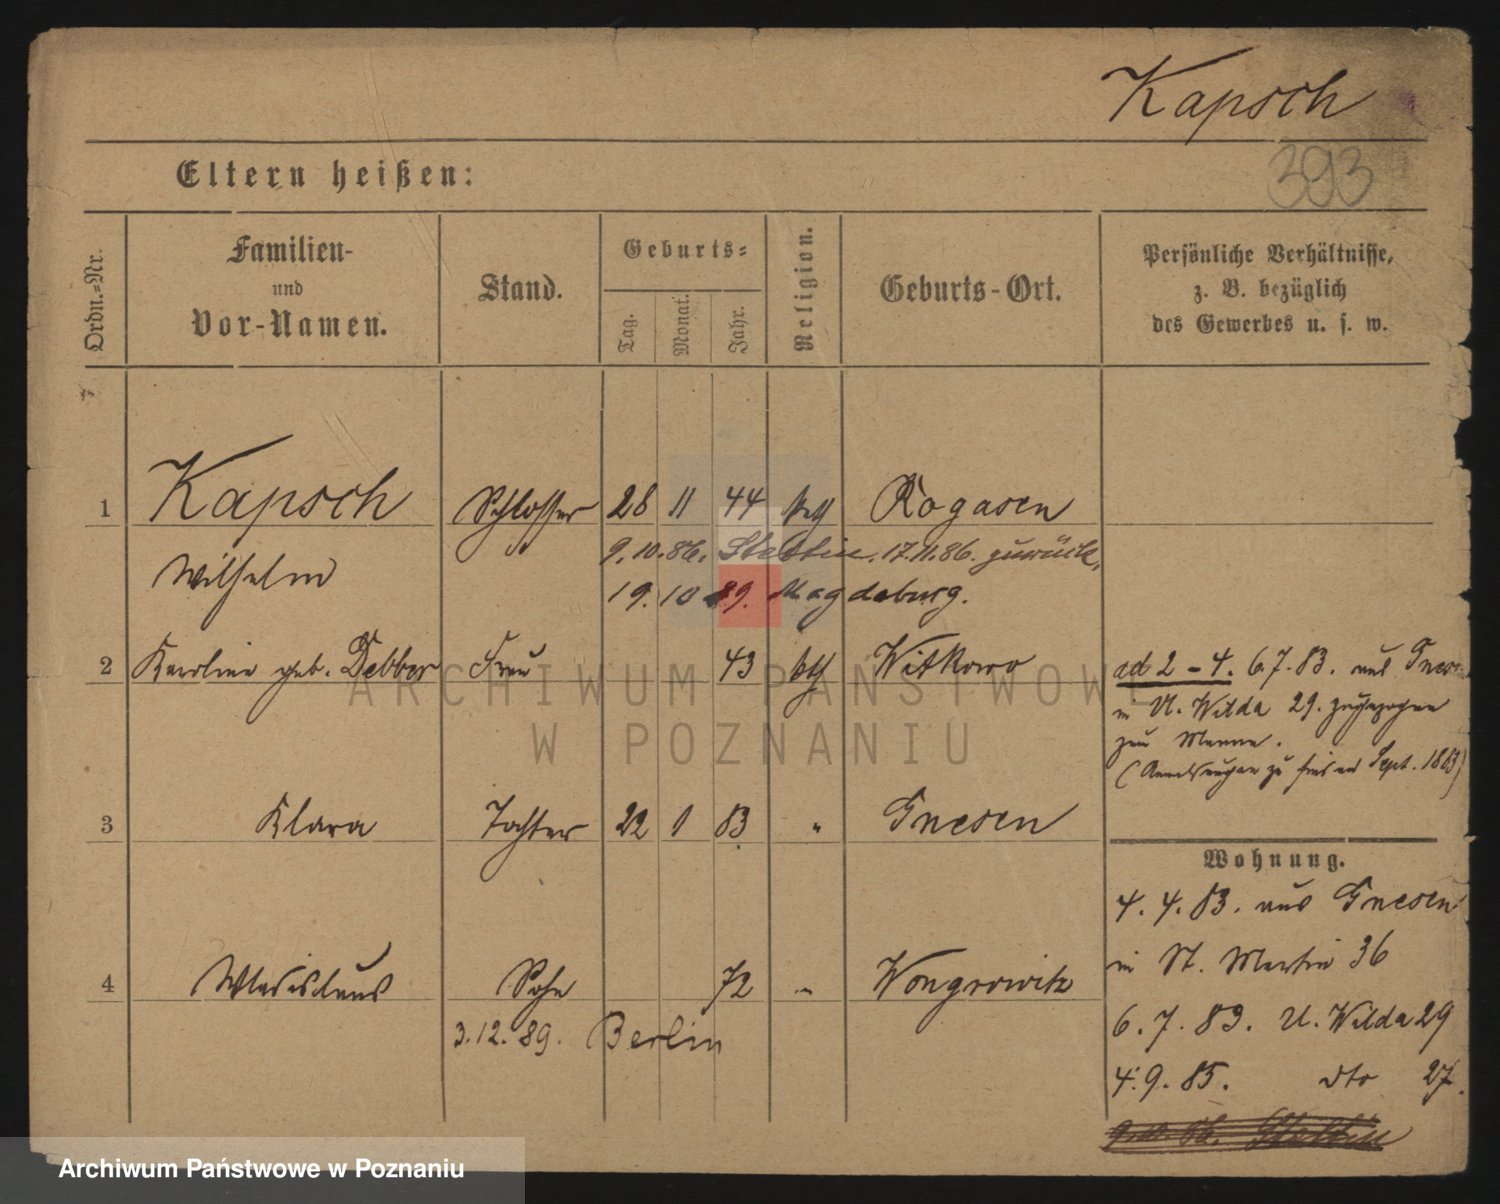 Kapsch
393
Eltern heißen:
Ordn.-Nr.
Familien-
und
Vor-Namen.
Stand.
Geburts-
Tag.
Monat.
Jahr.
Religion.
Geburts-Ort.
Persönliche Verhältnisse,
z. B. bezüglich
des Gewerbes u. s. w.
1 Kapsch Schlosser 28 11 44 kth Rogasen
9.10.86. Stettin. 17.11.86. zurück.
Wilhelm
19. 10 89. Magdeburg.
2 Karoline geb. Debber Frau 43 kth Witkowo
ad 2-4. 6.7.83. aus Gnesen
in U. Wilda 29. zugezogen
zum Manne.
( zu Sept. 1883)
3 Klara Tochter 22 1 83 " Gnesen
Wohnung.
4. 4. 83. aus Gnesen
in St. Martin 36
4 Wladislaus Sohn 72 " Wongrowitz
3.12.89. Berlin
6. 7. 83. U. Wilda 29
4. 9. 85. dto 27.
9.10.86. Stettin
ARCHIWUM PAŃSTWOWE
W POZNANIU
Archiwum Państwowe w Poznaniu